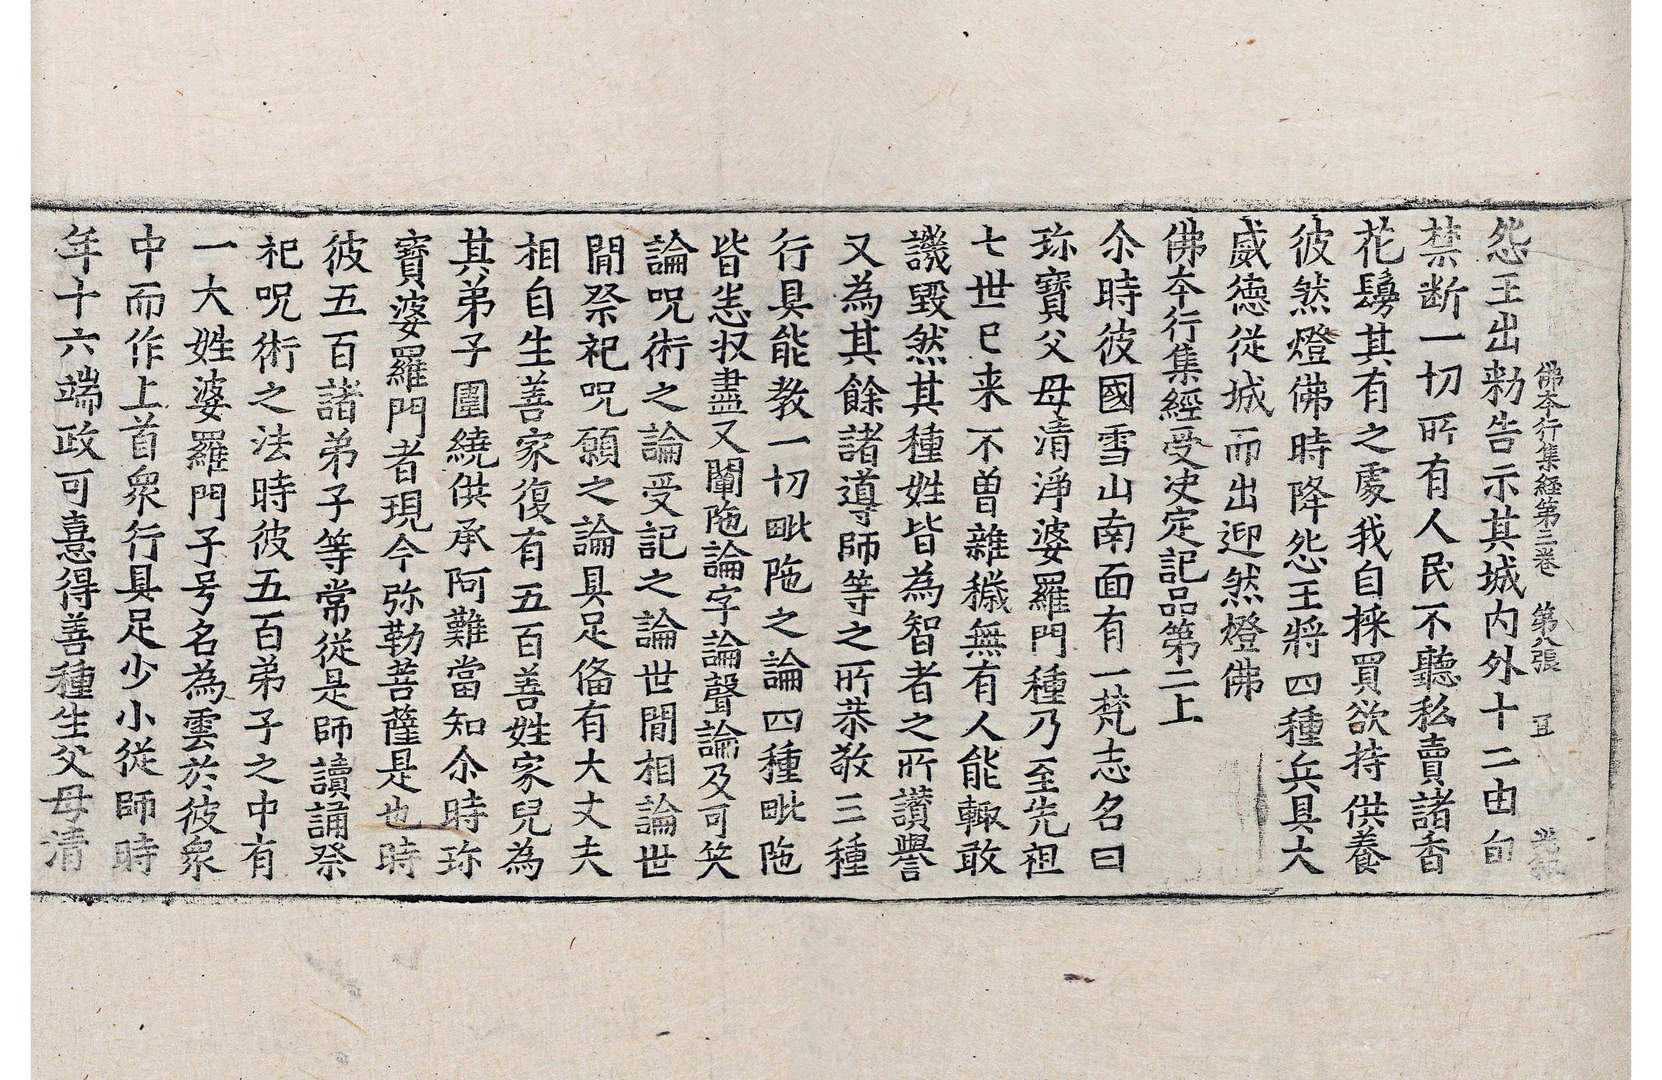 佛夲行集経第三卷 第八張 宜
怨王出勑告示其城內外十二由旬
禁断一切所有人民不聽私賣諸香
花鬘其有之處我自採買欲持供養
彼然燈佛時降怨王將四種兵具大
威德從城而出迎然燈佛
佛夲行集經受决定記品第二上
尒時彼國雪山南面有一梵志名曰
珎寶父母清淨婆羅門種乃至先祖
七世已来不曾雜穢無有人能輙敢
譏毀然其種姓皆為智者之所讚譽
又為其餘諸導師等之所恭敬三種
行具能教一切毗陁之論四種毗陁
皆悉収盡又闡陁論字論聲論及可笑
論呪術之論受記之論世閒相論世
閒祭祀呪願之論具足俻有大丈夫
相自生善家復有五百善姓家兒為
其弟子圍繞供承阿難當知尒時珎
寶婆羅門者現今弥勒菩薩是也時
彼五百諸弟子等常從是師讀誦祭
祀呪術之法時彼五百弟子之中有
一大姓婆羅門子号名為雲於彼衆
中而作上首衆行具足少小從師時
年十六端政可憙得善種生父母清